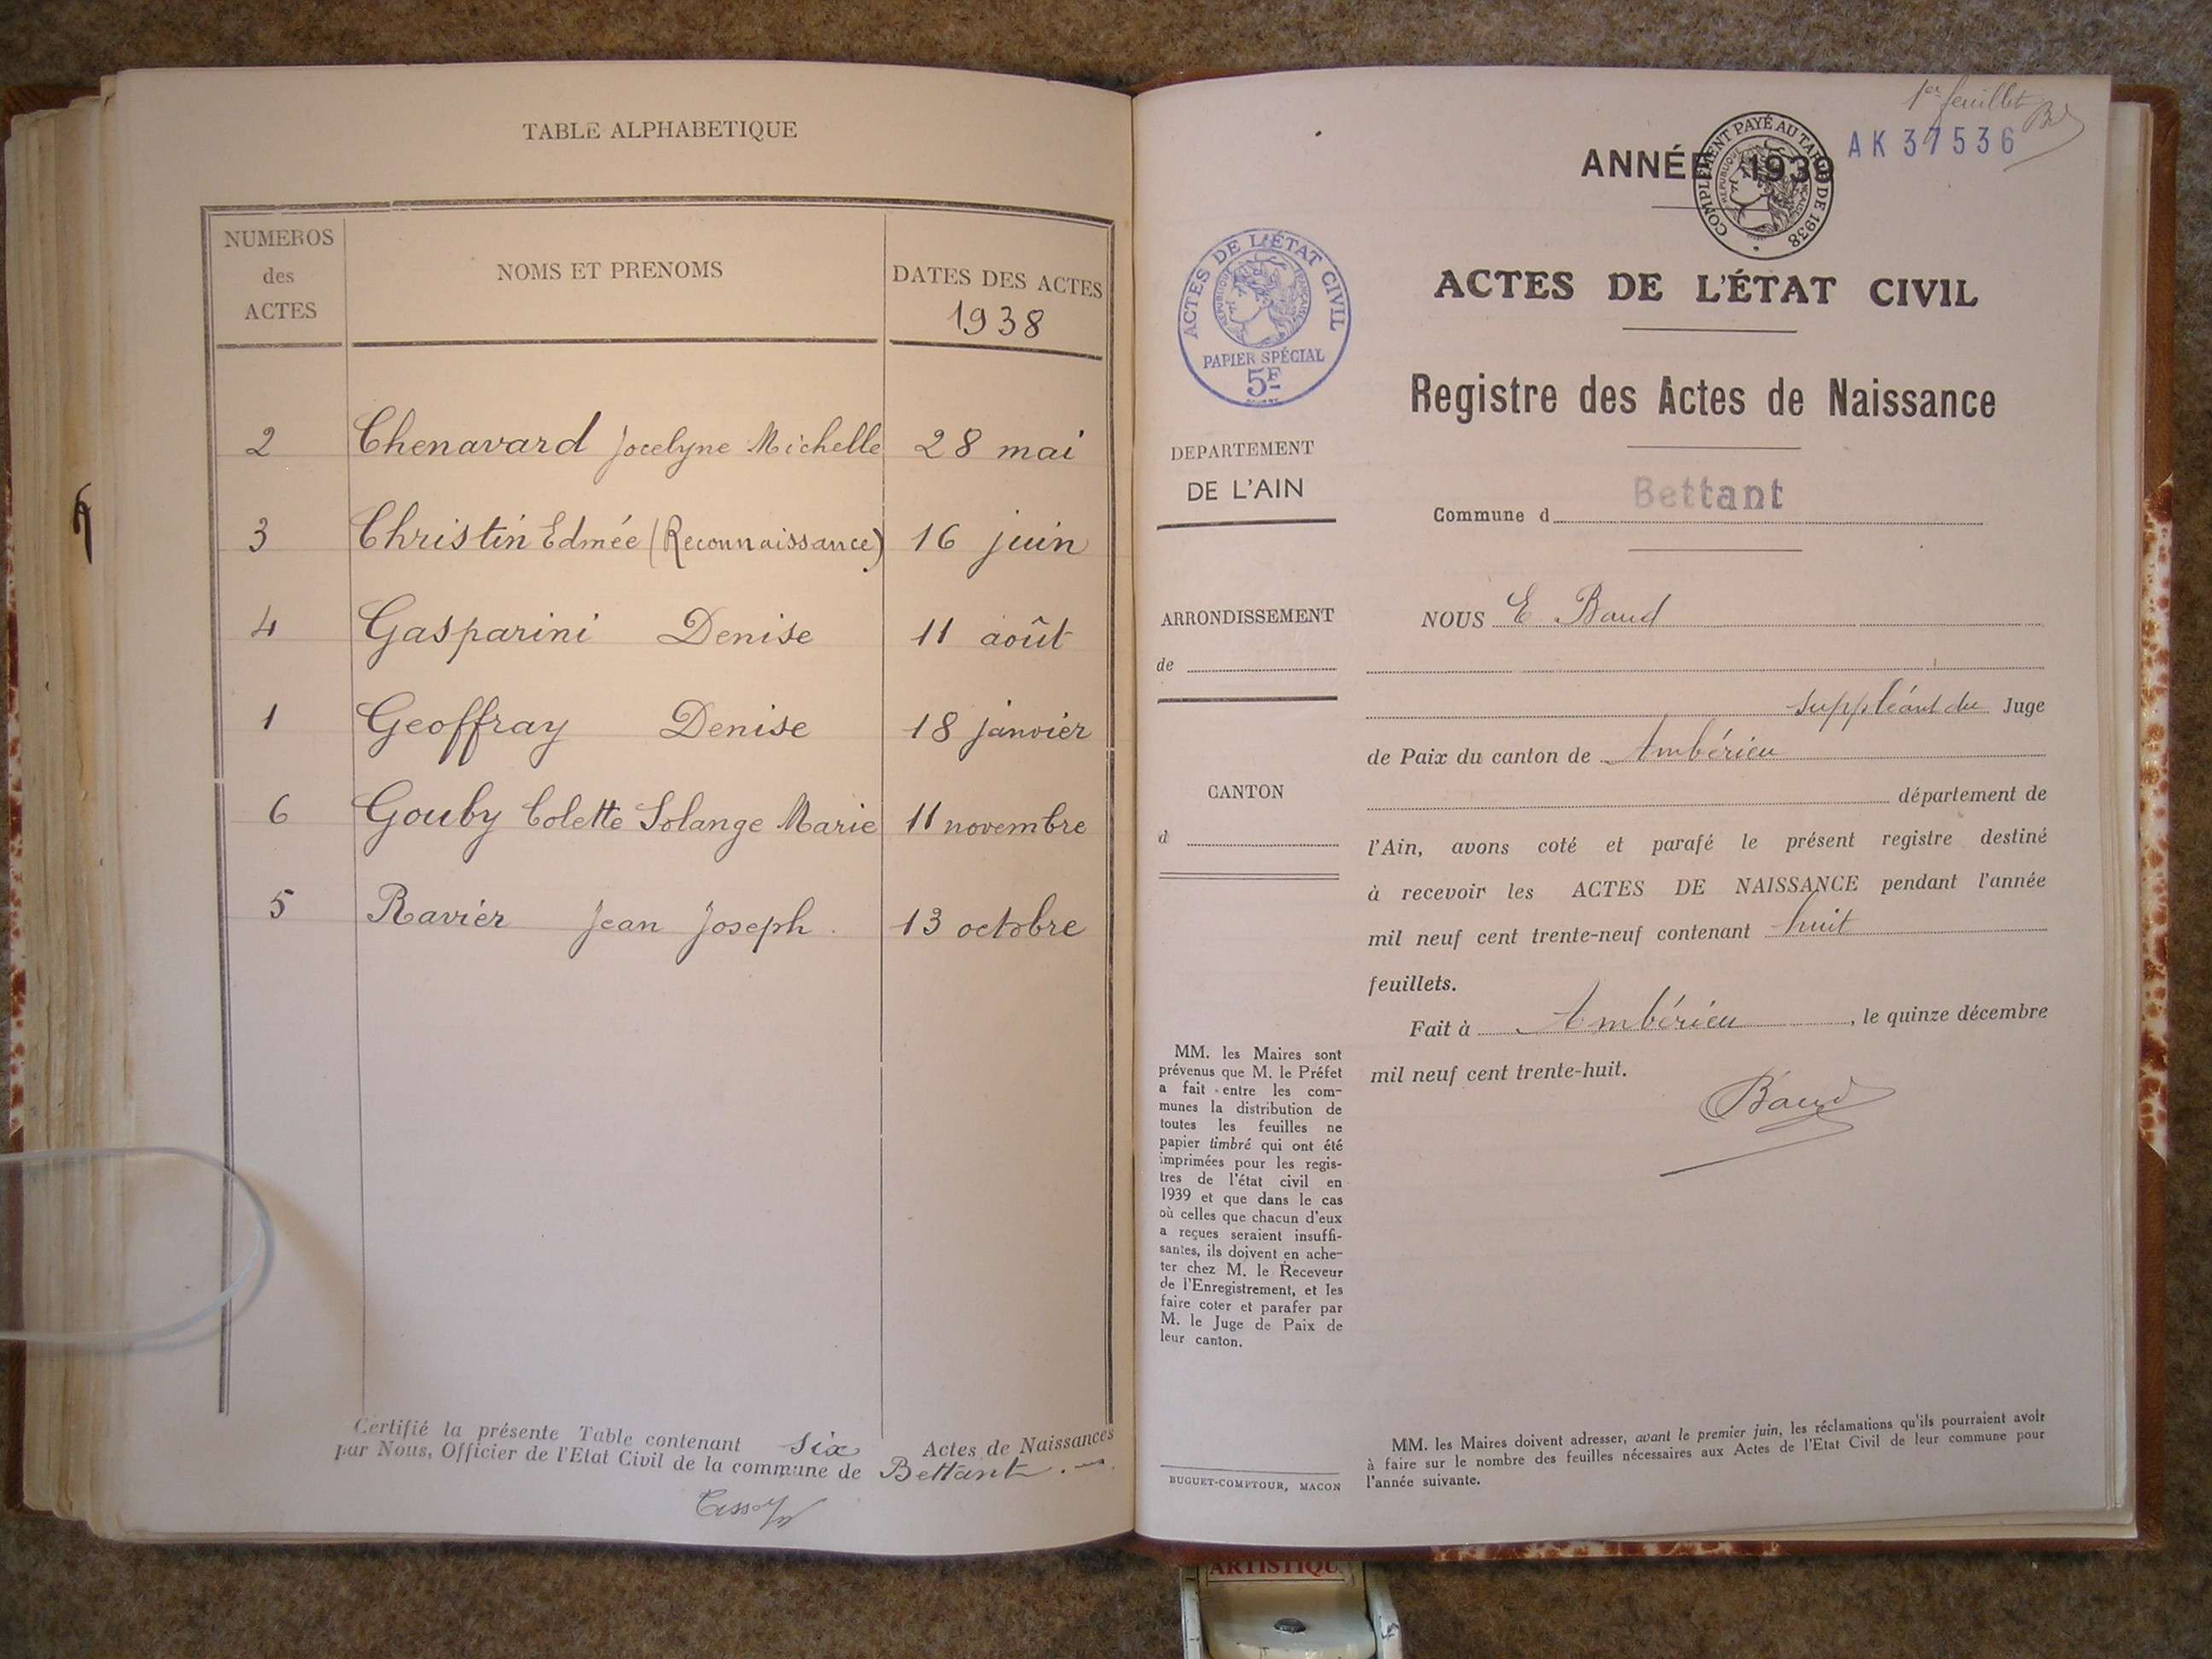 TABLE ALPHABETIQUE
NUMEROS
des
ACTES
NOMS ET PRENOMS
DATES DES ACTES
1938
2 Chenavard Jocelyne Michelle 28 mai
3 Christin Edmée (Reconnaissance) 16 juin
4 Gasparini Denise 11 août
1 Geoffray Denise 18 janvier
6 Gouby Colette Solange Marie 11 novembre
5 Ravier Jean Joseph. 13 octobre
Certifié la présente Table contenant six Actes de Naissances
par Nous, Officier de l'Etat Civil de la commune de Bettant.
1er feuillet
AK 37536
ANNÉE 1939
COMPLÉMENT PAYÉ AU TARIF DE 1938
RÉPUBLIQUE FRANÇAISE
ACTES DE L'ÉTAT CIVIL
RÉPUBLIQUE FRANÇAISE
PAPIER SPÉCIAL
5F
ACTES DE L'ÉTAT CIVIL
Registre des Actes de Naissance
DEPARTEMENT
DE L'AIN
Commune d Bettant
ARRONDISSEMENT
de
CANTON
d
NOUS E Baud
suppléant du Juge
de Paix du canton de Ambérieu
département de
l'Ain, avons coté et parafé le présent registre destiné
à recevoir les ACTES DE NAISSANCE pendant l'année
mil neuf cent trente-neuf contenant huit
feuillets.
Fait à Ambérieu, le quinze décembre
mil neuf cent trente-huit.
Baud
MM. les Maires sont
prévenus que M. le Préfet
a fait entre les com-
munes la distribution de
toutes les feuilles ne
papier timbré qui ont été
imprimées pour les regis-
tres de l'état civil en
1939 et que dans le cas
où celles que chacun d'eux
a reçues seraient insuffi-
santes, ils doivent en ache-
ter chez M. le Receveur
de l'Enregistrement, et les
faire coter et parafer par
M. le Juge de Paix de
leur canton.
BUGUET-COMPTOUR, MACON
MM. les Maires doivent adresser, avant le premier juin, les réclamations qu'ils pourraient avoir
à faire sur le nombre des feuilles nécessaires aux Actes de l'Etat Civil de leur commune pour
l'année suivante.
ARTISTIQU